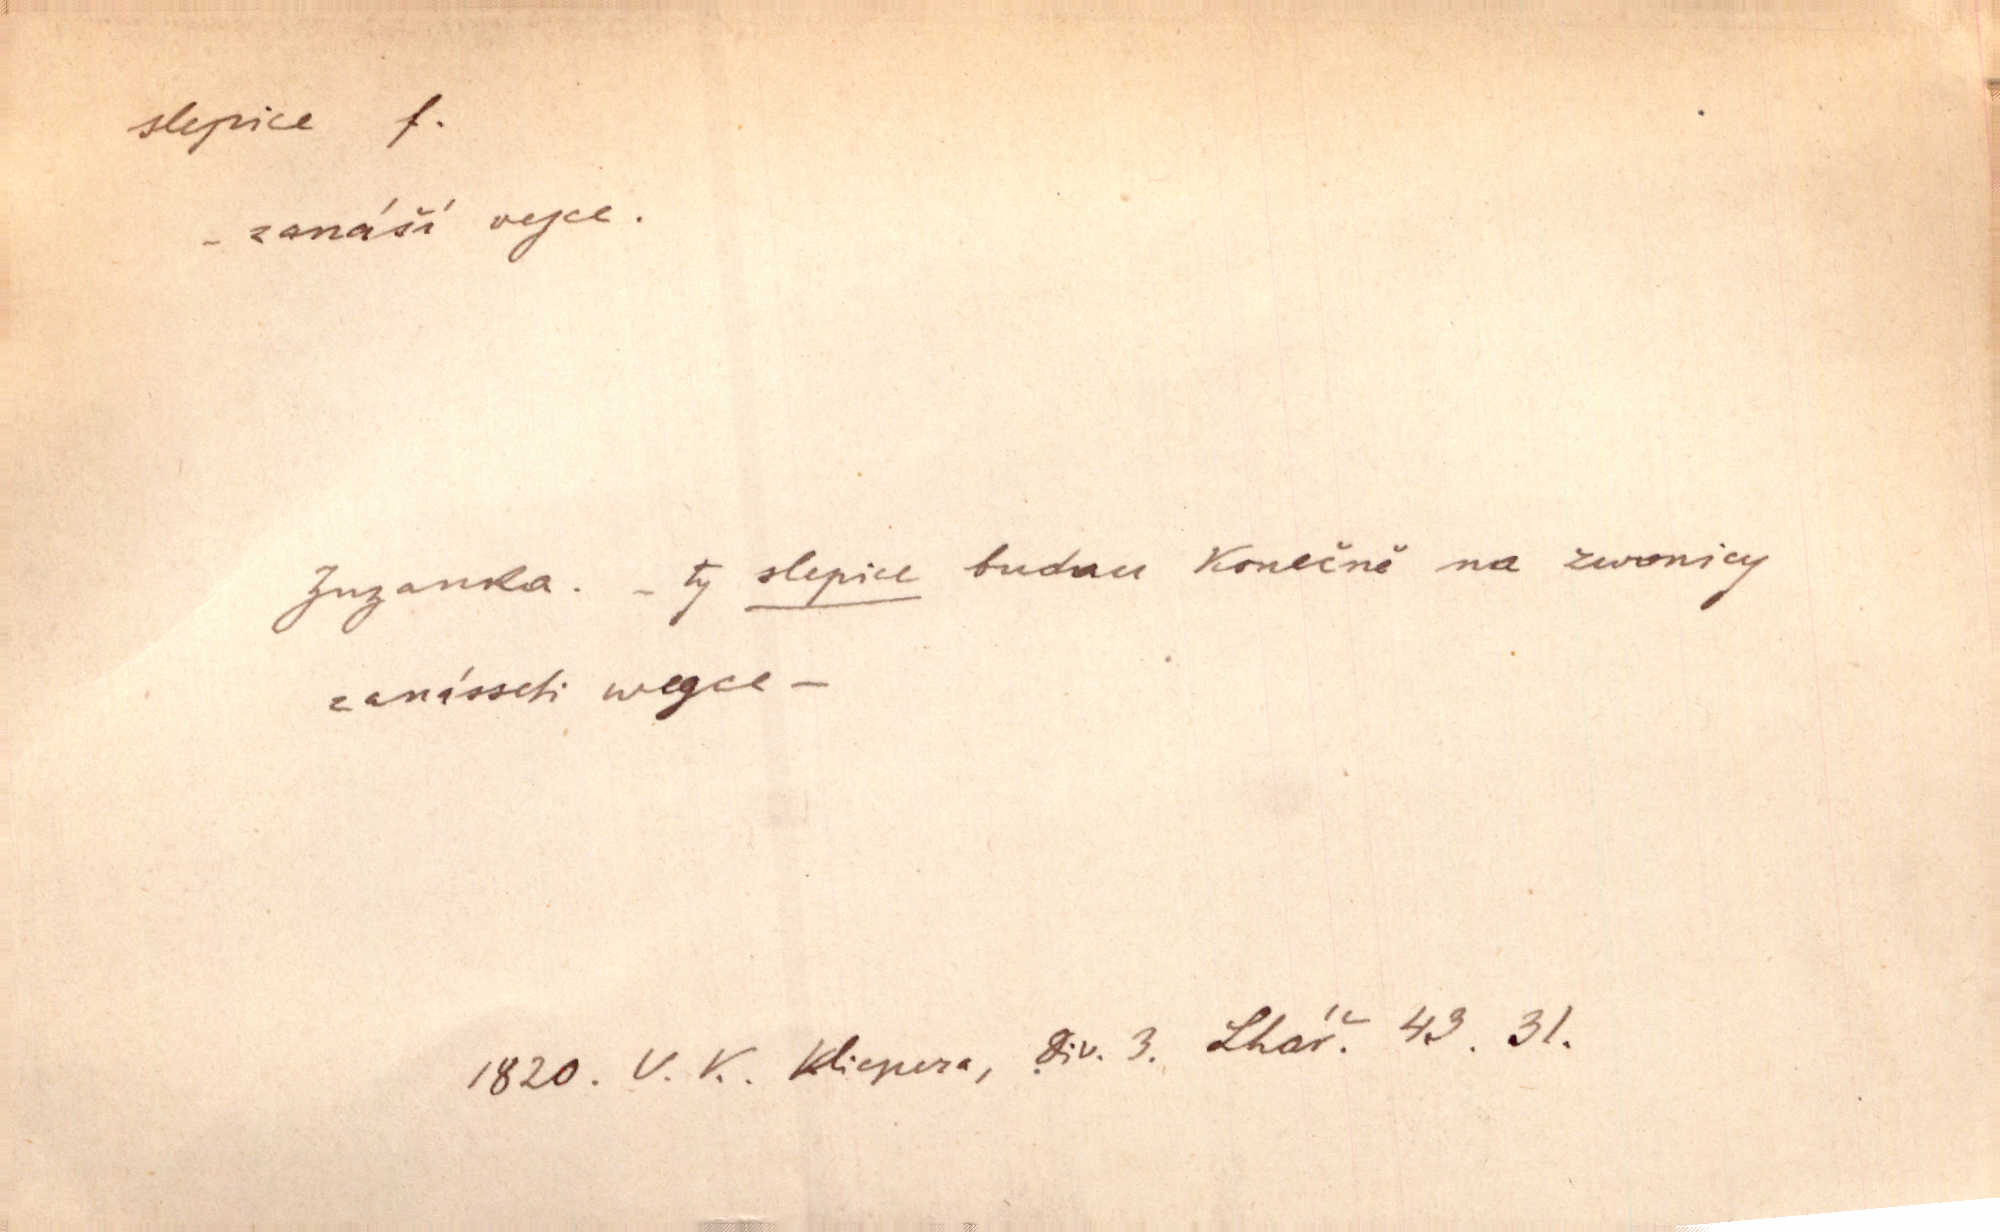 slepice f.
- zanáší vejce.
Zuzanka. - ty slepice budau konečně na zwonicy
zanásseti wegce -
1820. V. K. Klicpera, Div. 3. Lhář. 43. 31.